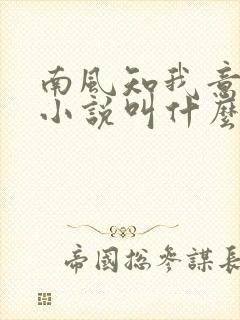 南風知我意
小說叫什麼
帝國總參謀長